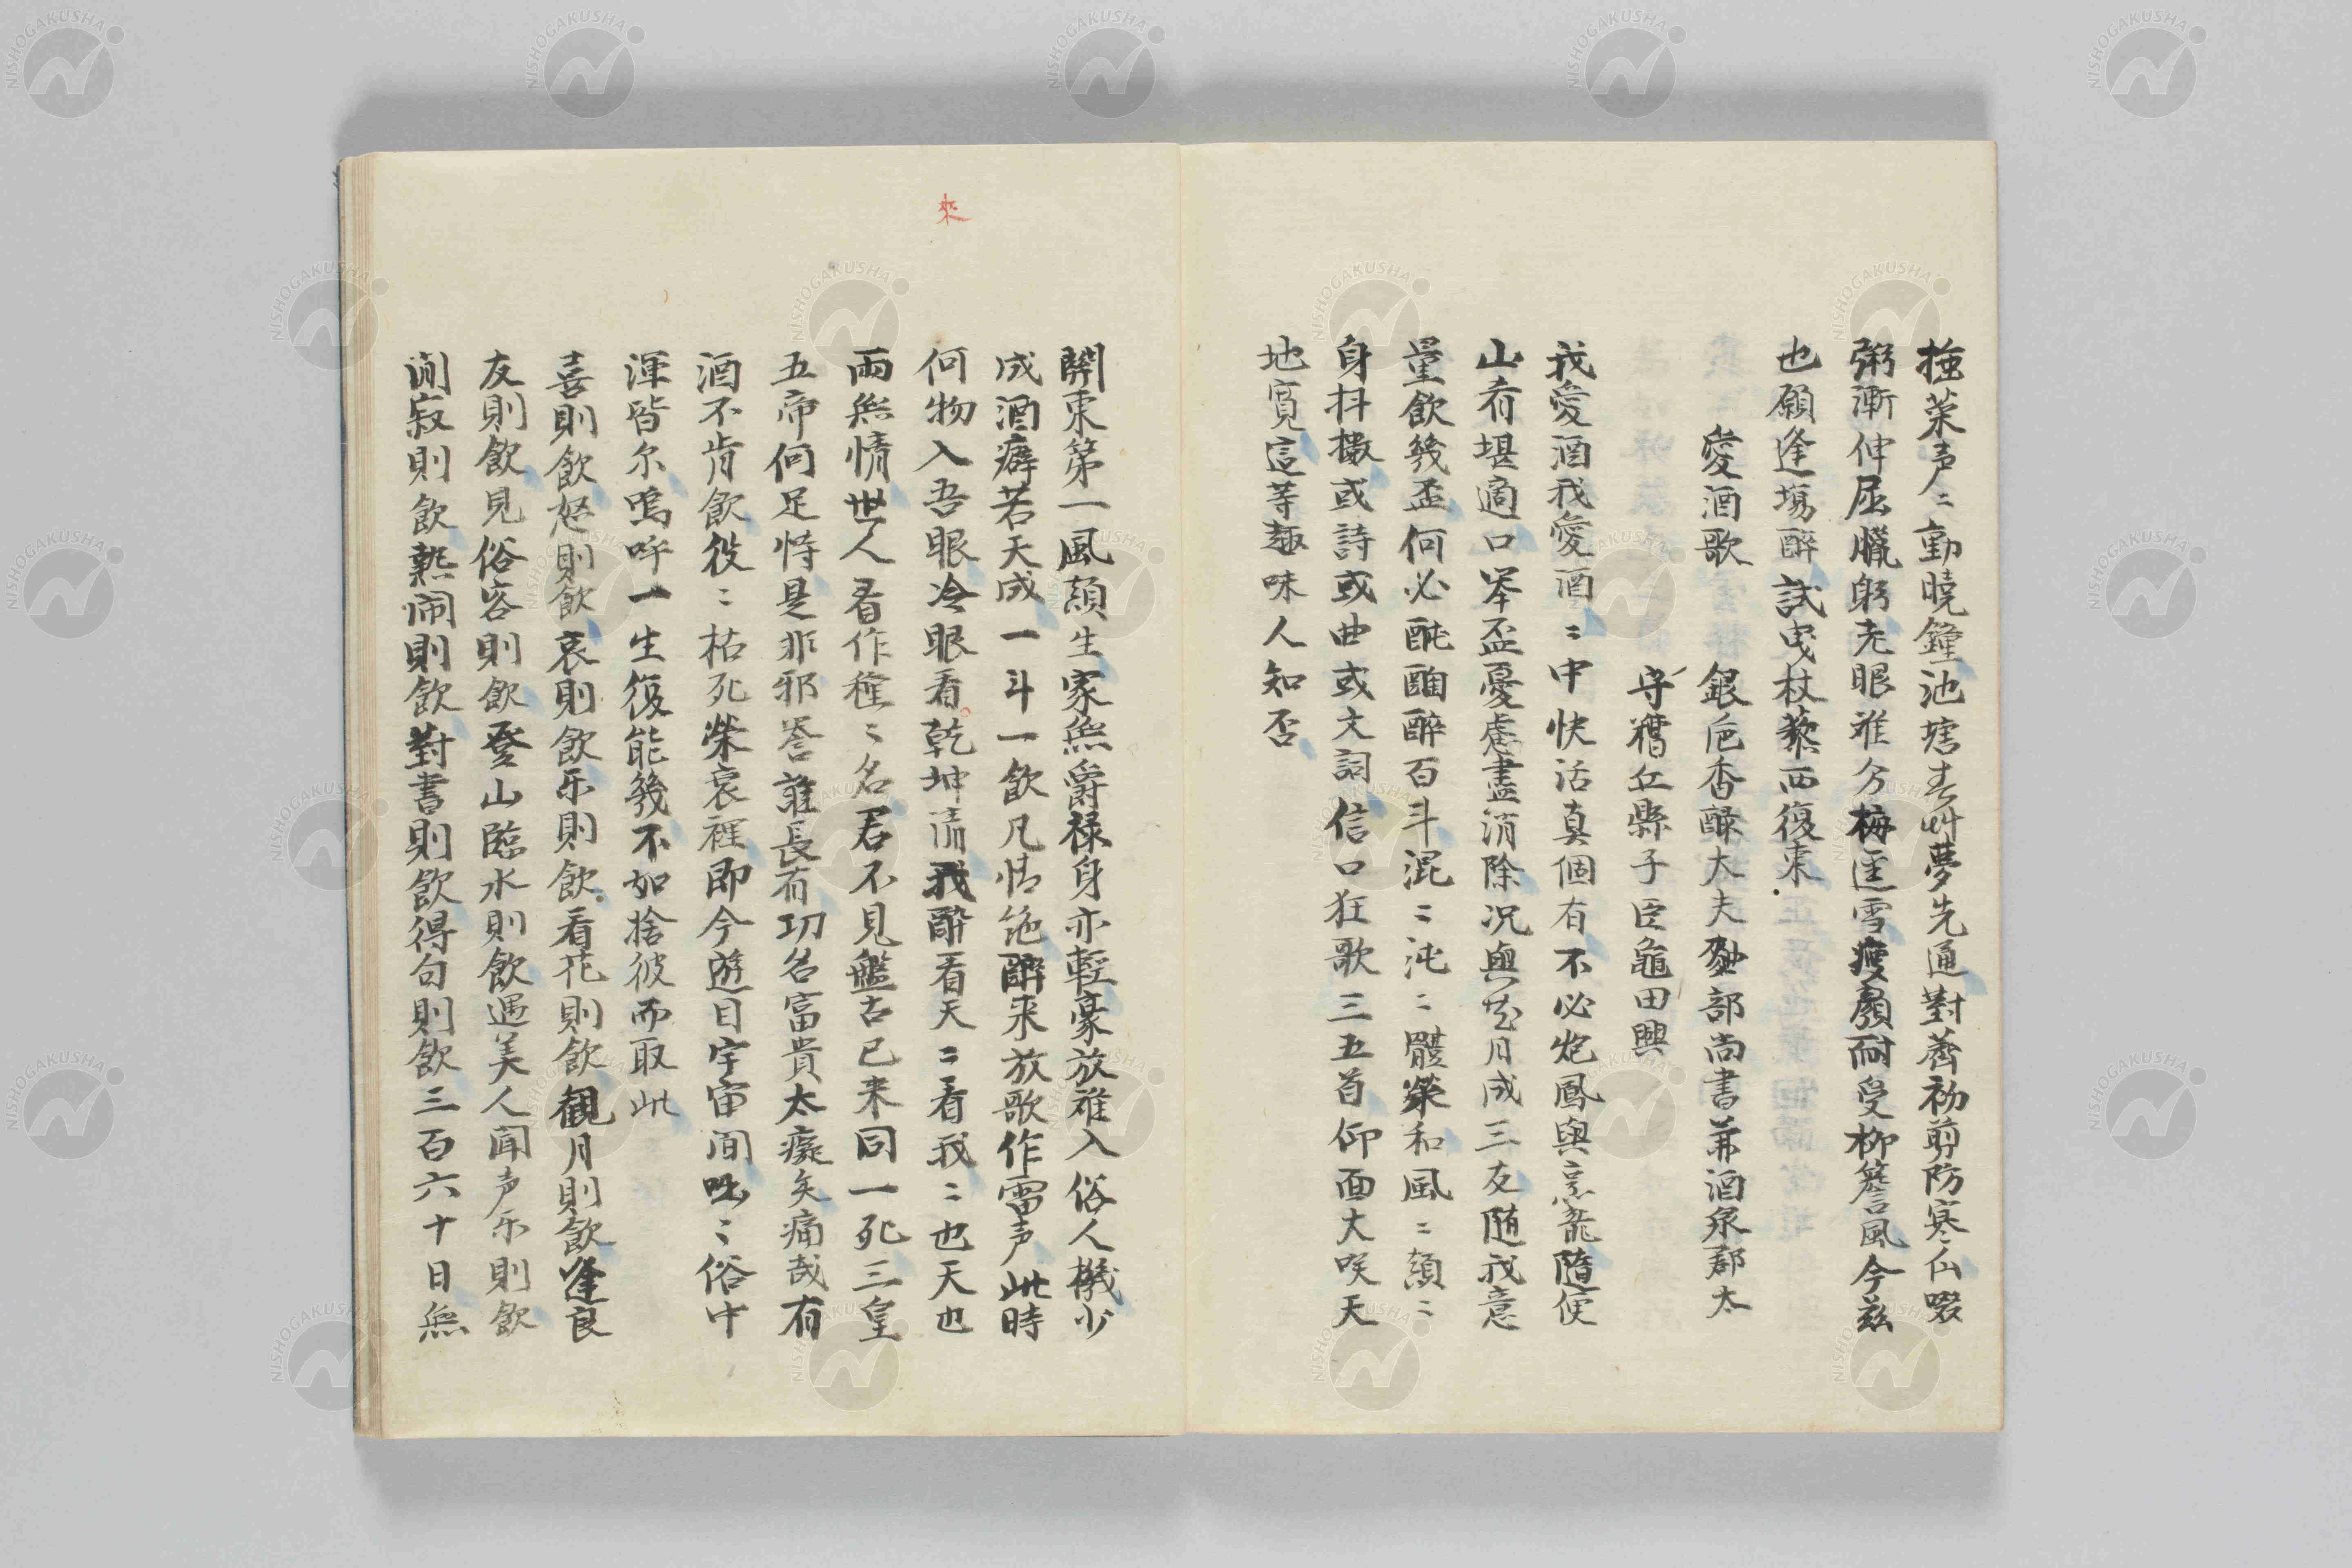 菜声〻動曉鐘池塘春艸夢先通對薺初剪防寒仏啜
粥漸伸屈臘躬老眼难分梅 雪瘦顏耐受柳簷風今茲
也願逢場醉試曳杖藜西復東
愛酒歌
銀巵香醸大夫 部尚書兼酒泉郡太
守糟丘縣子臣龜田興
我愛酒我愛酒〻中快活真個有不必炮鳳與烹龍隨便
山肴堪適口举盃憂慮盡消除况與花月成三友随我意
量飲幾盃何必酕醄醉百斗混〻沌〻體樂和風〻顛〻
身抖擻或詩或曲或文詞信口狂歌三五首仰面大咲天
地寛這等趣味人知否
関東第一風顛生家無爵禄身亦輕豪放难入俗人機少
成酒癖若天成一斗一飲凡情絶醉来放歌作雷声此時
何物入吾眼冷眼看乾坤清我醉看天〻看我〻也天也
兩無情世人看作種〻名君不見盤古已来同一死三皇
五帝何足恃是非邪誉誰長有功名富貴太癡矣痛哉有
酒不肯飲役〻枯死榮哀裡即今遊目宇宙间咄〻俗中
渾皆尔嗚呼一生復能幾不如捨彼而取此
喜則飲怒則飲哀則飲乐則飲看花則飲観月則飲逢良
友則飲見俗客則飲登山臨水則飲遇美人聞声乐則飲
闲寂則飲熱闹則飲對書則飲得句則飲三百六十日無
來
NISHOGAKUSHA